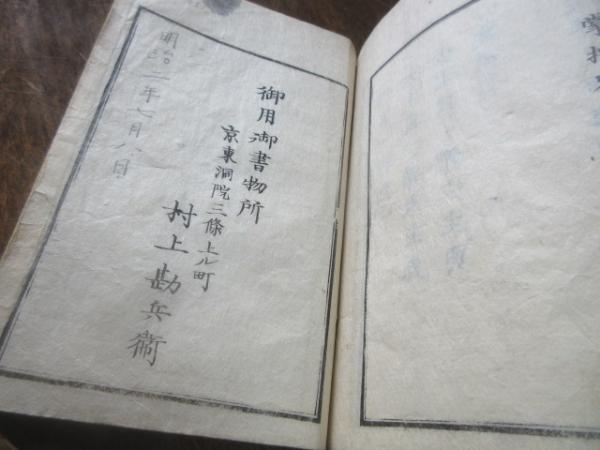 御用御書物所
京東洞院三條上ル町
村上勘兵衞
明治二年七月八日